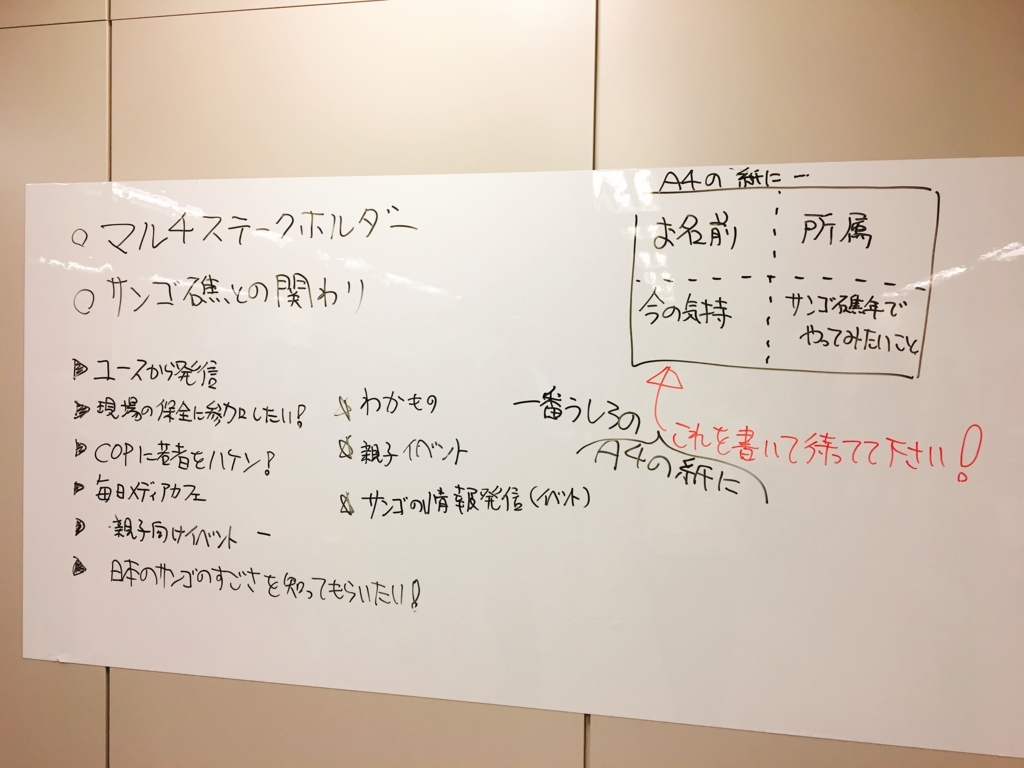 ○ マルチステークホルダー
○ サンゴ礁との関わり
ユースから発信
現場の保全に参加したい!
COPに若者をハケン!
毎日メディアカフェ
親子向けイベント ー
日本のサンゴのすごさを知ってもらいたい!
わかもの
親子イベント
サンゴの情報発信(イベント)
A4の紙に…
お名前
所属
今の気持
サンゴ礁年で
やってみたいこと
一番うしろの
A4の紙に
これを書いて待ってて下さい!